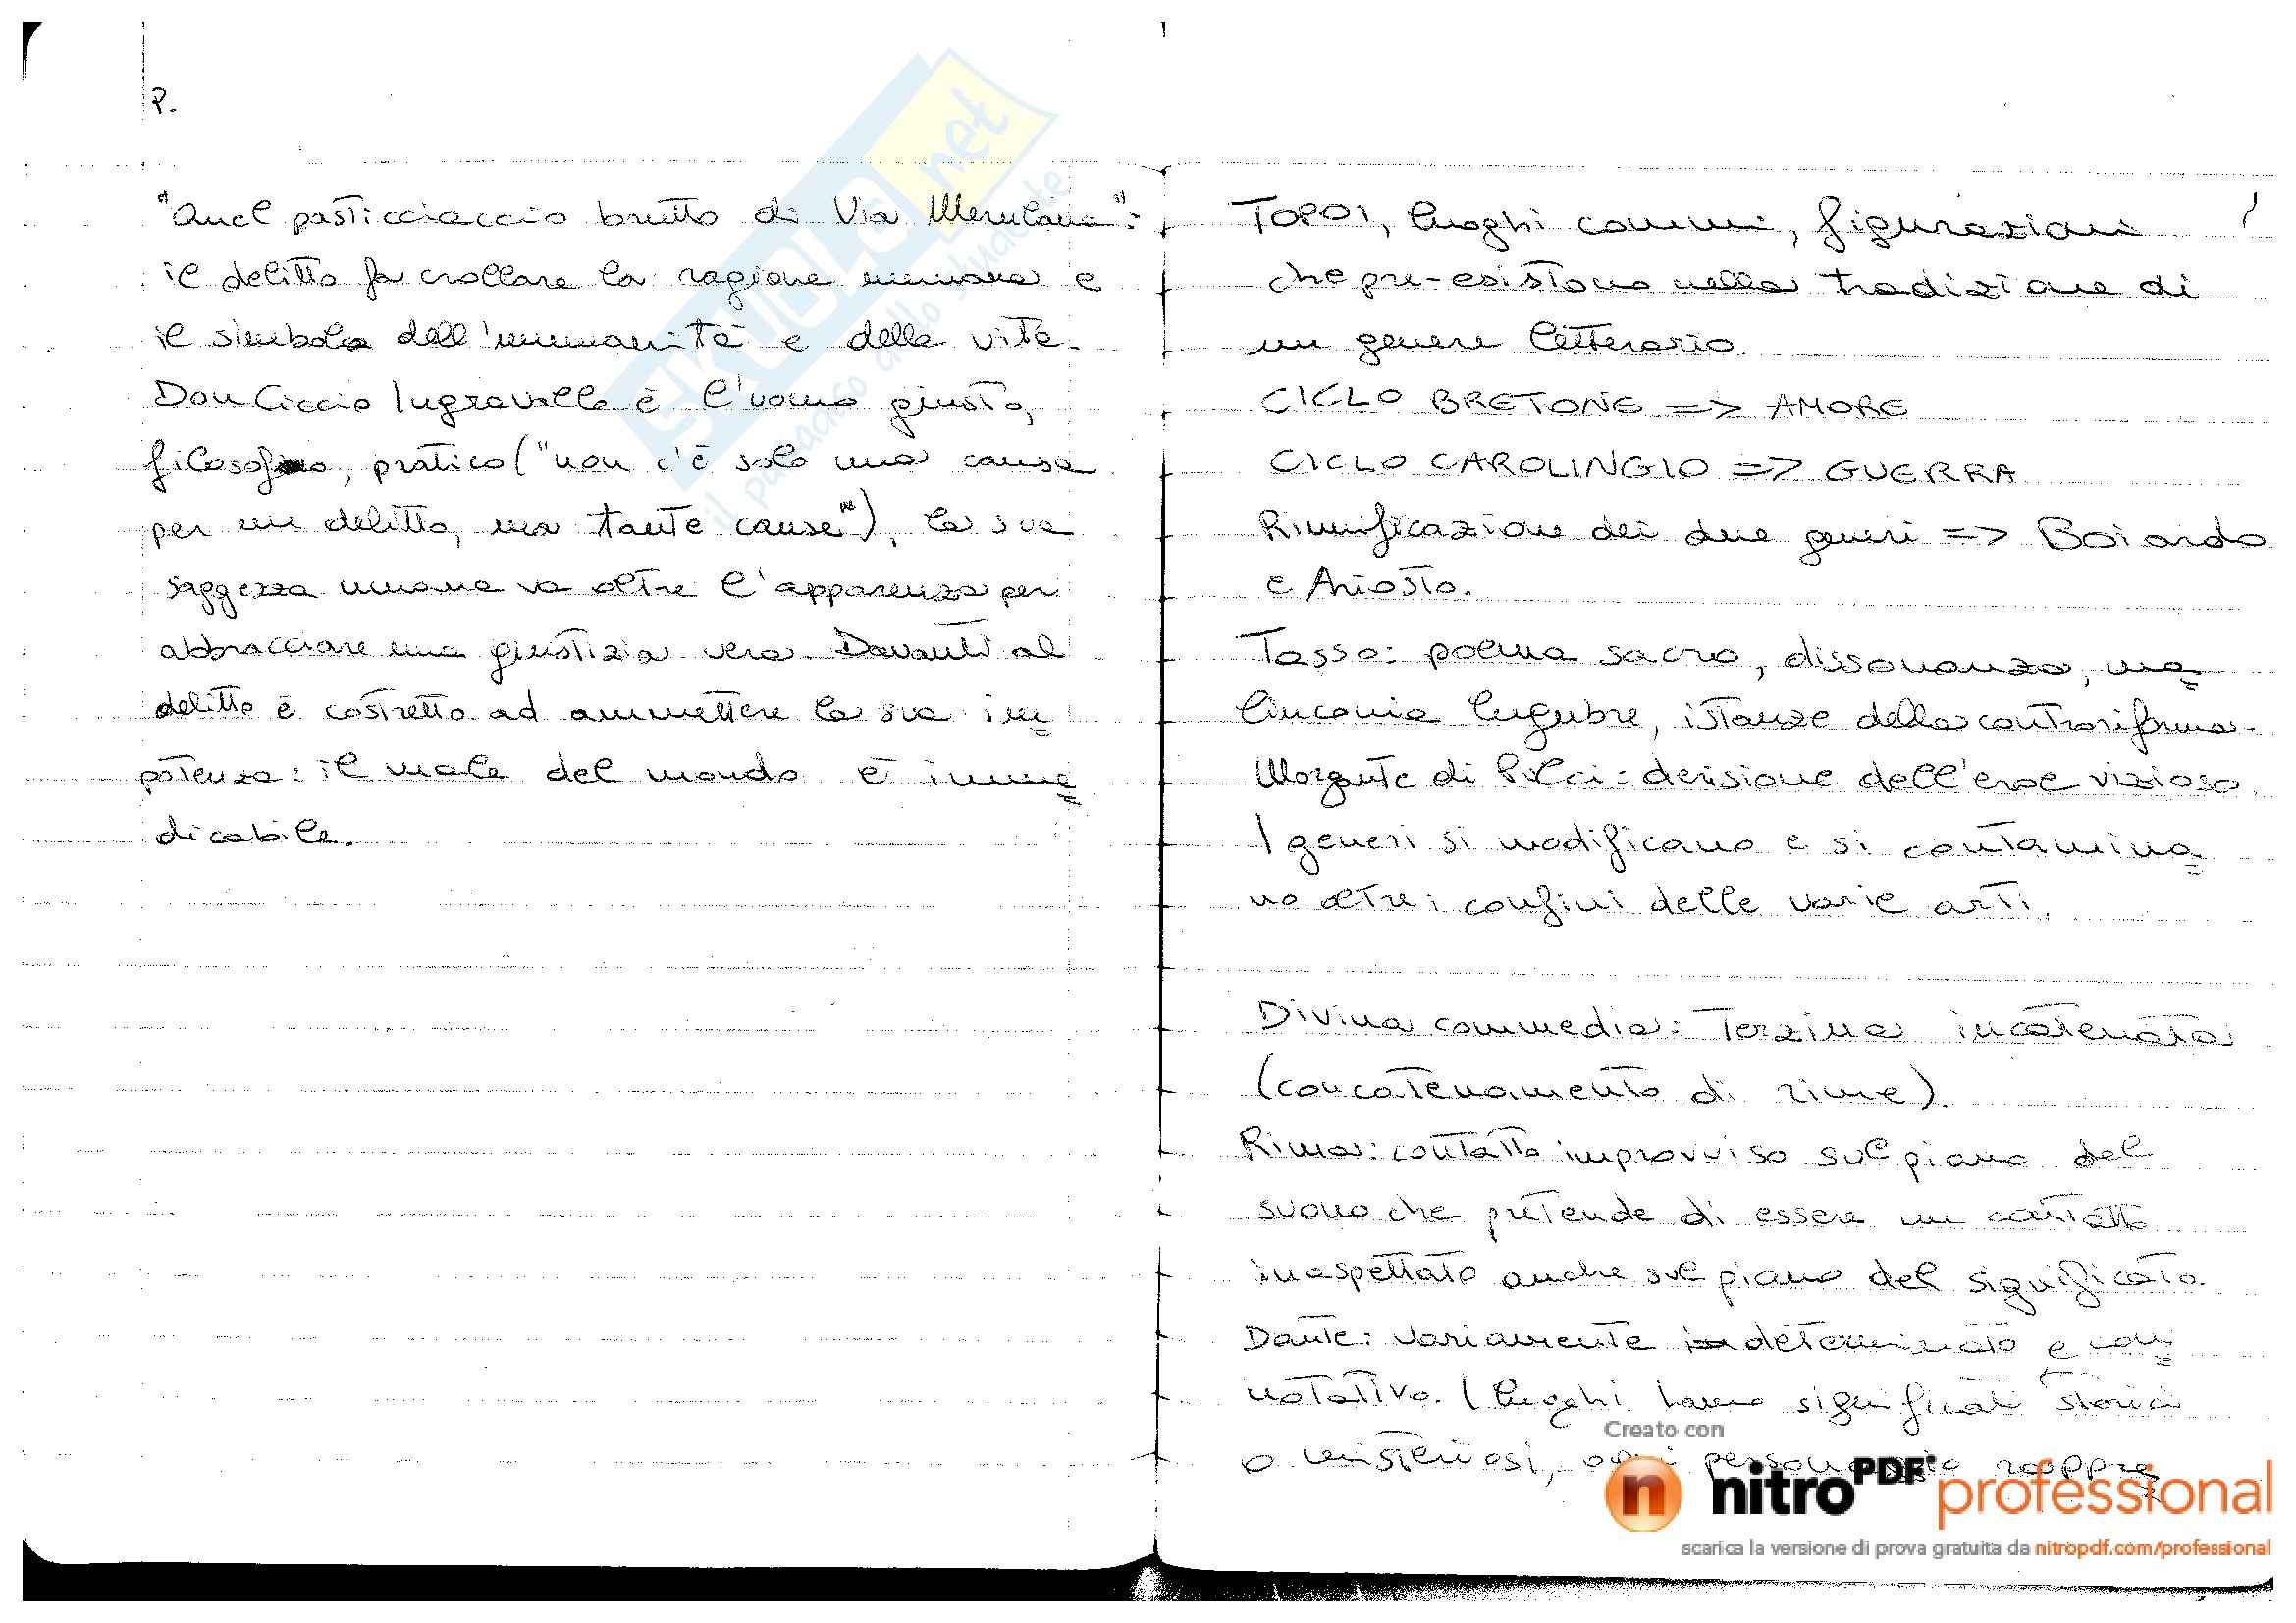 P.
"Quel pasticciaccio brutto di Via Merulana":
il delitto fa crollare la ragione umana e
il simbolo dell'umanità e della vita.
Don Ciccio Ingravallo è l'uomo giusto,
filosofo, pratico ("non c'è solo una causa
per un delitto, ma tante cause"), la sua
saggezza umana va oltre l'apparenza per
abbracciare una giustizia vera. Davanti al
delitto è costretto ad ammettere la sua im=
potenza: il male del mondo è imme=
dicabile.
TOPOI, luoghi comuni, figurazioni
che pre-esistono nella tradizione di
un genere letterario.
CICLO BRETONE => AMORE
CICLO CAROLINGIO => GUERRA
Riunificazione dei due generi => Boiardo
e Ariosto.
Tasso: poema sacro, dissonanza, ma=
linconia lugubre, istanze della controriforma.
Morgante di Pulci: derisione dell'eroe vizioso.
I generi si modificano e si contamina=
no oltre i confini delle varie arti.
Divina commedia: Terzina incatenata
(concatenamento di rime).
Rima: contatto improvviso sul piano del
suono che pretende di essere un contatto
inaspettato anche sul piano del significato.
Dante: variamente determinato e con=
notativo. I luoghi hanno significati storici
o misteriosi, ogni personaggio rappre=
SKUOLA.net
il paradiso dello studente
Creato con
nitro PDF professional
scarica la versione di prova gratuita da nitropdf.com/professional